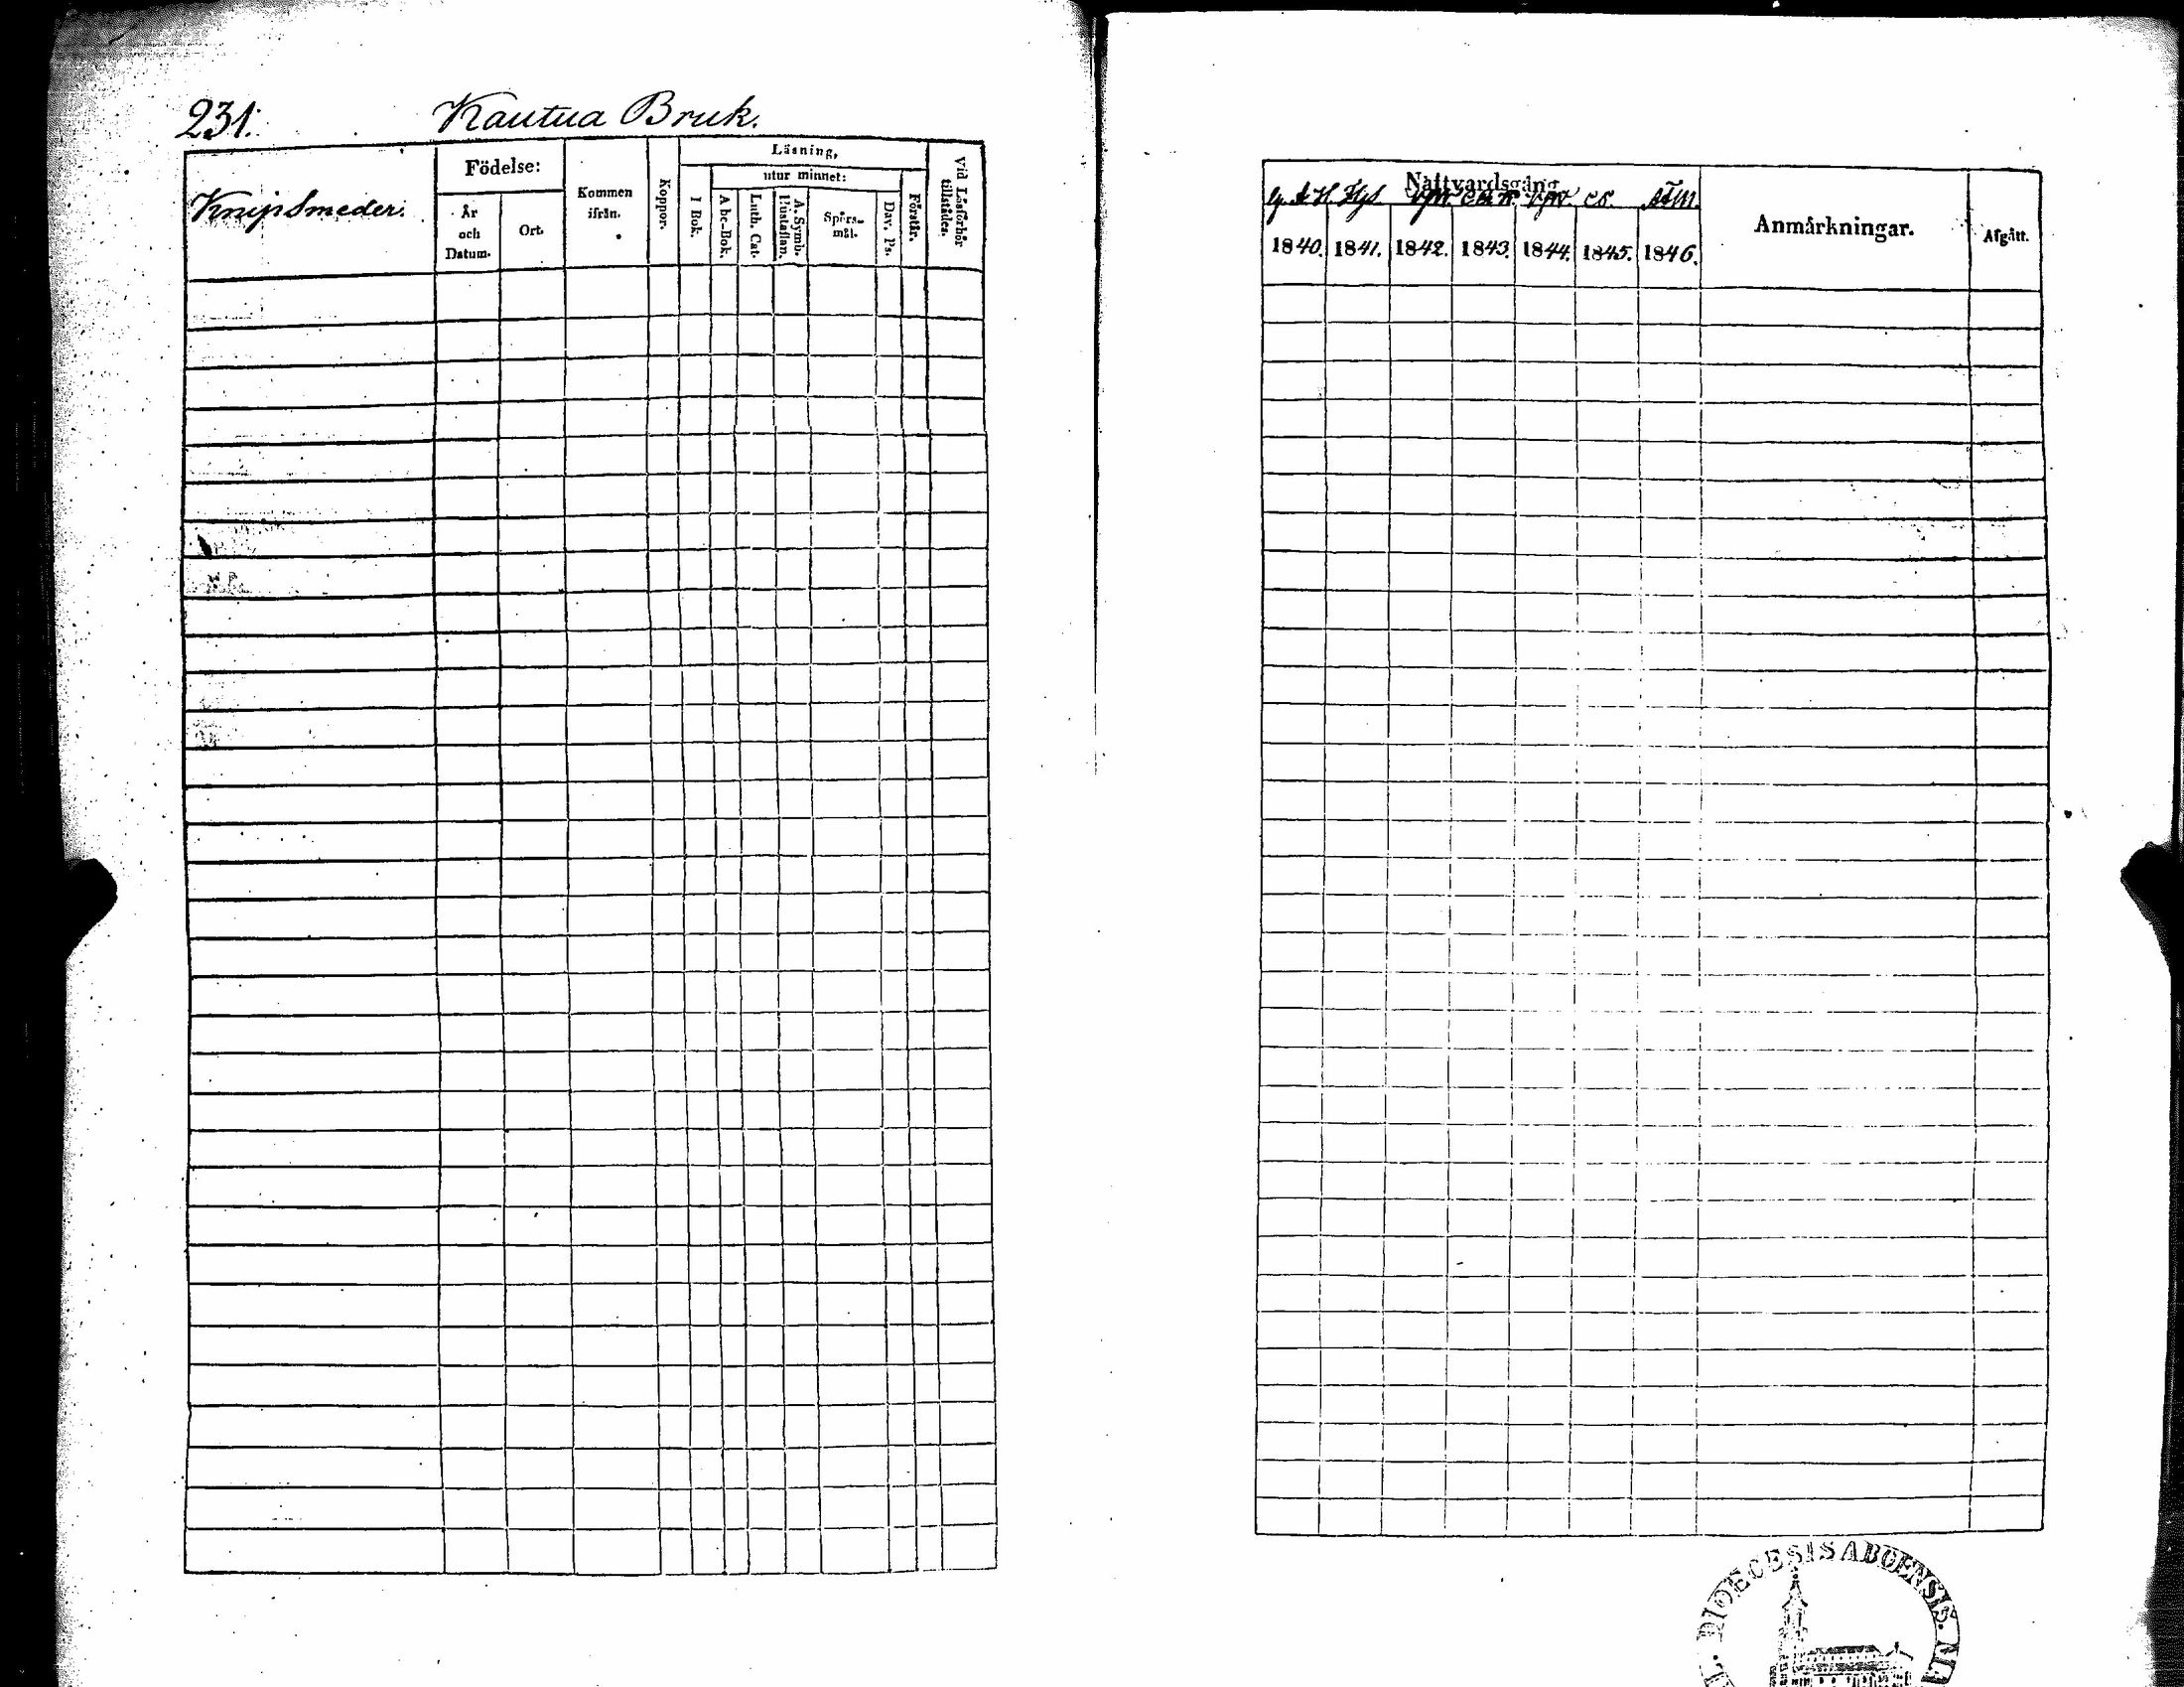 231.
Kautua Bruk.
KnipSmeder.
Födelse:
År
och
Datum.
Ort.
Kommen
ifrån.
Koppor.
Läsning,
utur minnet:
I Bok.
Abc-Bok.
Luth. Cat.
A. Symb.
Hustaflan.
Spörs-
mål.
Dav. Ps.
Förstår.
Vid Läsförhör
tillstädes.
Nattvardsgång
1840. 1841. 1842. 1843. 1844. 1845. 1846.
Anmärkningar.
Afgått.
DIOECESIS ABOENSIS.